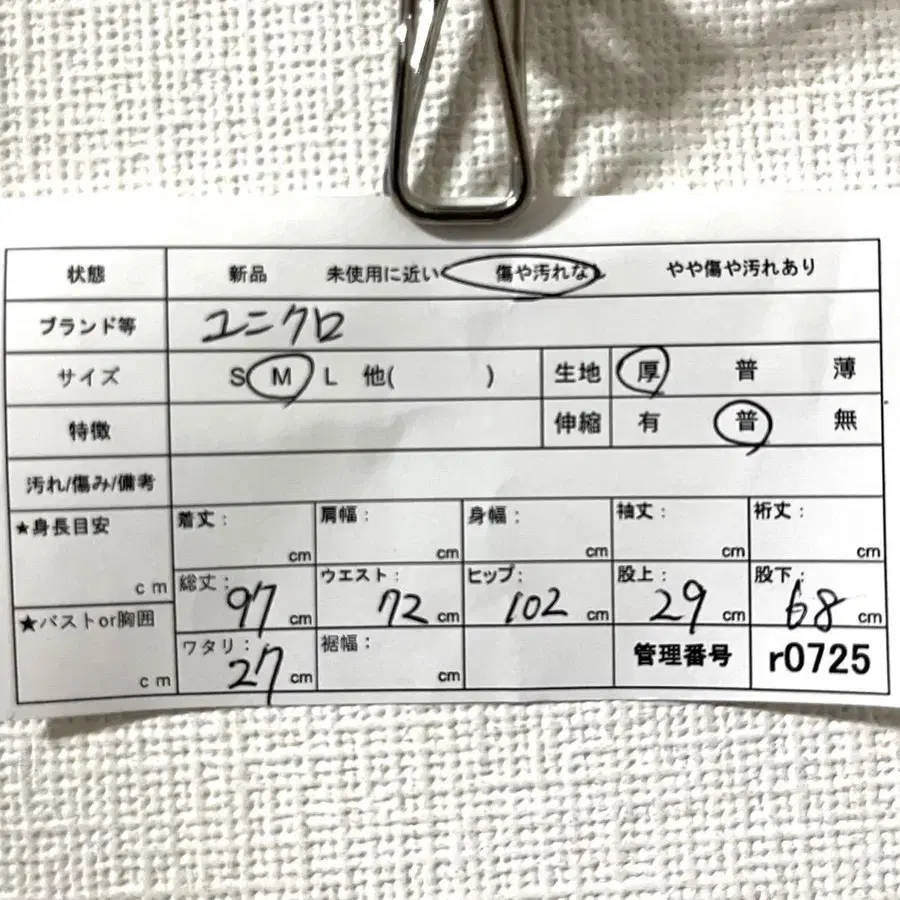 状態 新品 未使用に近い 傷や汚れな やや傷や汚れあり
ブランド等 ユニクロ
サイズ S M L 他( ) 生地 厚 普 薄
特徴 伸縮 有 普 無
汚れ/傷み/備考
★身長目安 cm 着丈: cm 肩幅: cm 身幅: cm 袖丈: cm 裄丈: cm
総丈: 97 cm ウエスト: 72 cm ヒップ: 102 cm 股上: 29 cm 股下: 68 cm
★バストor胸囲 cm ワタリ: 27 cm 裾幅: cm 管理番号 r0725